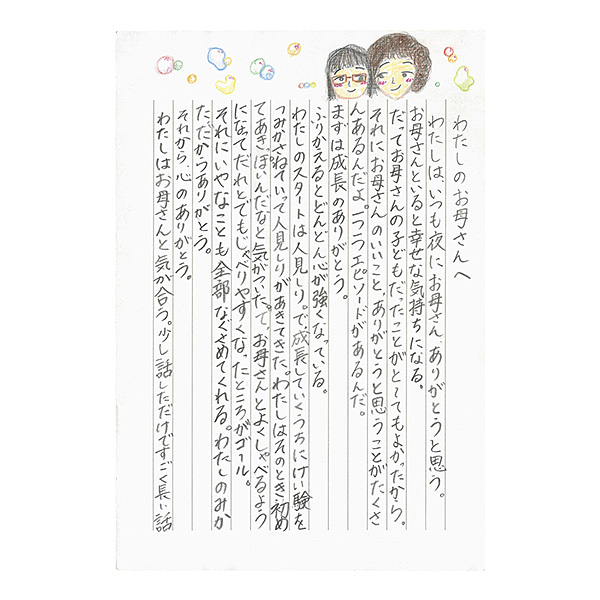 わたしのお母さんへ
わたしは、いつも夜にお母さんありがとうと思う。
お母さんといると幸せな気持ちになる。
だってお母さんの子どもだったことがと〜てもよかったから。
それにお母さんのいいこと、ありがとうと思うことがたくさ
んあるんだよ。一つ一つエピソードがあるんだ。
まずは成長のありがとう。
ふりかえるとどんどん心が強くなっている。
わたしのスタートは人見しり。で、成長していくうちにけい験を
つみかさねていって人見しりがあきてきた。わたしはそのとき、初め
てあきっぽいんだなと気がついた。で、お母さんとよくしゃべるよう
になてだれとでもしゃべりやすくなったところがゴール。
それにいやなことも全部なぐさめてくれる。わたしのみか
ただからありがとう。
それから、心のありがとう。
わたしはお母さんと気が合う。少し話しただけですごく長い話